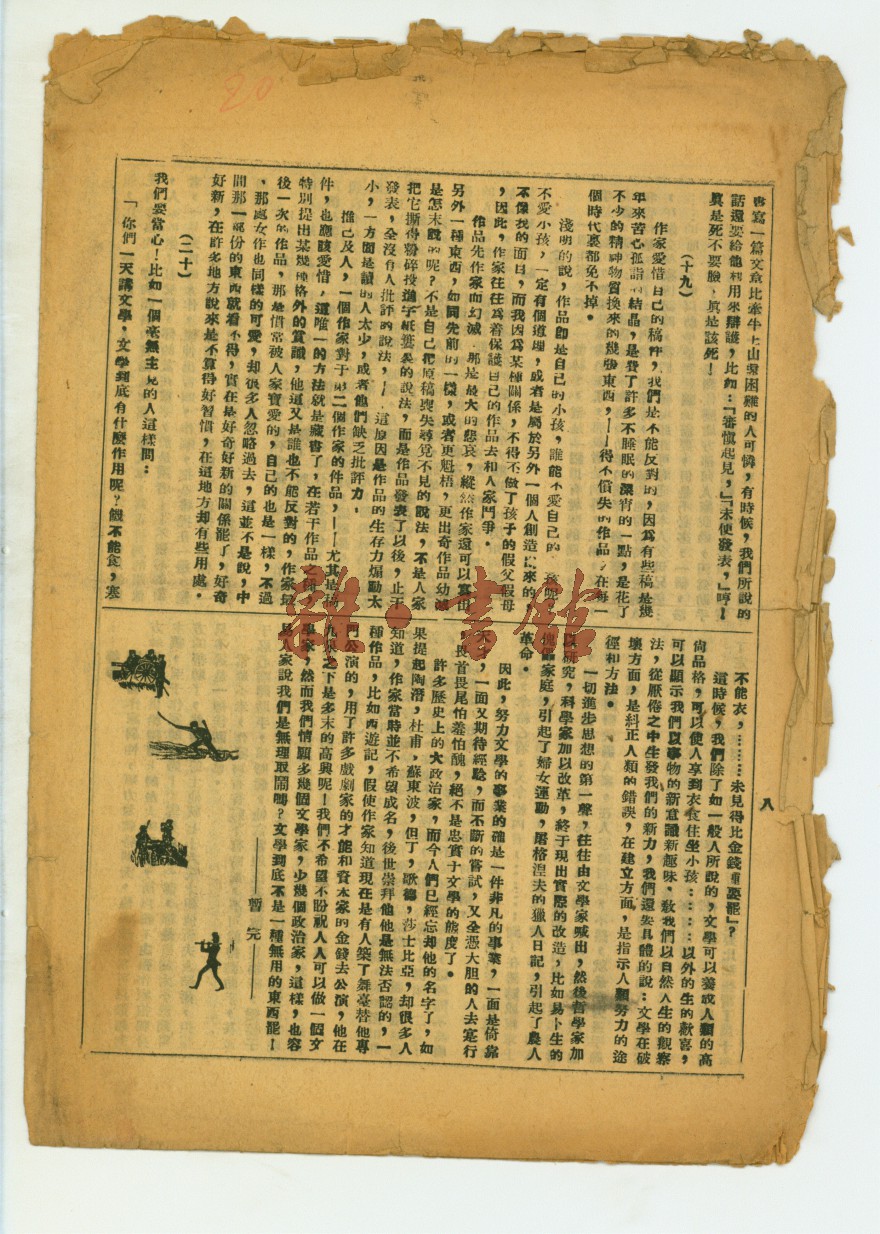 20
八
書寫一篇文章比牽牛上山還困難的人可憐，有時候，我們所說的
話還要給他利用來辯護，比如：『審愼起見，』『未便發表，』哼！
眞是死不要臉，眞是該死！
（十九）
作家愛惜自己的稿件，我們是不能反對的，因爲有些稿是幾
年來苦心孤詣的結晶，是費了許多不睡眠的深宵的一點，是花了
不少的精神物質換來的幾張東西，——得不償失的作品，在每一
個時代裏都免不掉。
淺明的說，作品卽是自己的小孩，誰能不愛自己的 孩呢
不愛小孩，一定有個道理，或者是屬於另外一個人創造出來的，
不像我的面目，而我因爲某種關係，不得不做了孩子的假父假母
，因此，作家往往爲着保護自己的作品去和人家鬥爭。
作品先作家而幻滅，那是最大的悲哀，縱然作家還可以寫出
另外一種東西，如同先前的一樣，或者更魁梧，更出奇作品幻滅
是怎末說的呢？不是自己把原稿喪失尋覓不見的說法，不是人家
把它撕得粉碎投進字紙簍裏的說法，而是作品發表了以後，止于
發表，全沒有人批評的說法，——這原因是作品的生存力煽動太
小，一方面是讀的人太少，或者他們缺乏批評力。
推己及人，一個作家對于第二個作家的作品，——尤其是稿
件，也應該愛惜，這唯一的方法就是藏書了，在若干作品之間，
特別提出某幾種格外的賞識，他這又是誰也不能反對的，作家最
後一次的作品，那是慣常被人家寶愛的，自己的也是一樣，不過
，那處女作也同樣的可愛，却很多人忽略過去，這並不是說，中
間那一部份的東西就看不得，實在是好奇好新的關係罷了，好奇
好新，在許多地方說來是不算得好習慣，在這地方却有些用處。
（二十）
我們要當心！比如一個毫無主見的人這樣問：
「你們一天講文學，文學到底有什麼作用呢？餓不能食，寒
不能衣，………未見得比金錢重要罷」？
這時候，我們除了如一般人所說的，文學可以養成人類的高
尙品格，可以使人享到衣食住坐小孩……以外的生的歡喜，
可以顯示我們以事物的新意識新趣味，敎我們以自然人生的觀察
法，從厭倦之中生發我們的新力，我們還要具體的說：文學在破
壞方面，是糾正人類的錯誤，在建立方面，是指示人類努力的途
徑和方法。
一切進步思想的第一聲，往往由文學家喊出，然後哲學家加
以硏究，科學家加以改革，終于現出實際的改造，比如易卜生的
傀儡家庭，引起了婦女運動，屠格涅夫的獵人日記，引起了農人
革命。
因此，努力文學的事業的確是一件非凡的事業，一面是倚靠
天才，一面又期待經驗，而不斷的嘗試，又全憑大胆的人去寔行
，畏首畏尾怕羞怕醜，絕不是忠實于文學的態度了。
許多歷史上的大政治家，而今人們已經忘却他的名字了，如
果提起陶潛，杜甫，蘇東波，但丁，歌德，莎士比亞，却很多人
知道，作家當時並不希望成名，後世崇拜他他是無法否認的，一
種作品，比如西遊記，假使作家知道現在是有人築了舞臺替他專
門公演的，用了許多戲劇家的才能和資本家的金錢去公演，他在
九泉之下是多末的高興呢！我們不希望不盼祝人人可以做一個文
學家，然而我們情願多幾個文學家，少幾個政治家，這樣，也容
易人家說我們是無理取鬧嗎？文學到底不是一種無用的東西罷！
——暫完——
雜·書館